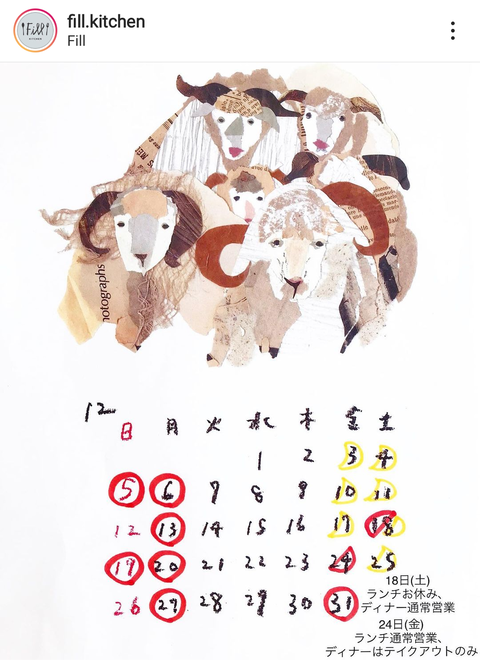 fill.kitchen
Fill
Fill
KITCHEN
hotographs
12
日 月 火 水 木 金 土
1 2 3 4
5 6 7 8 9 10 11
12 13 14 15 16 17 18
19 20 21 22 23 24 25
26 27 28 29 30 31
18日(土)
ランチお休み、
ディナー通常営業
24日(金)
ランチ通常営業、
ディナーはテイクアウトのみ